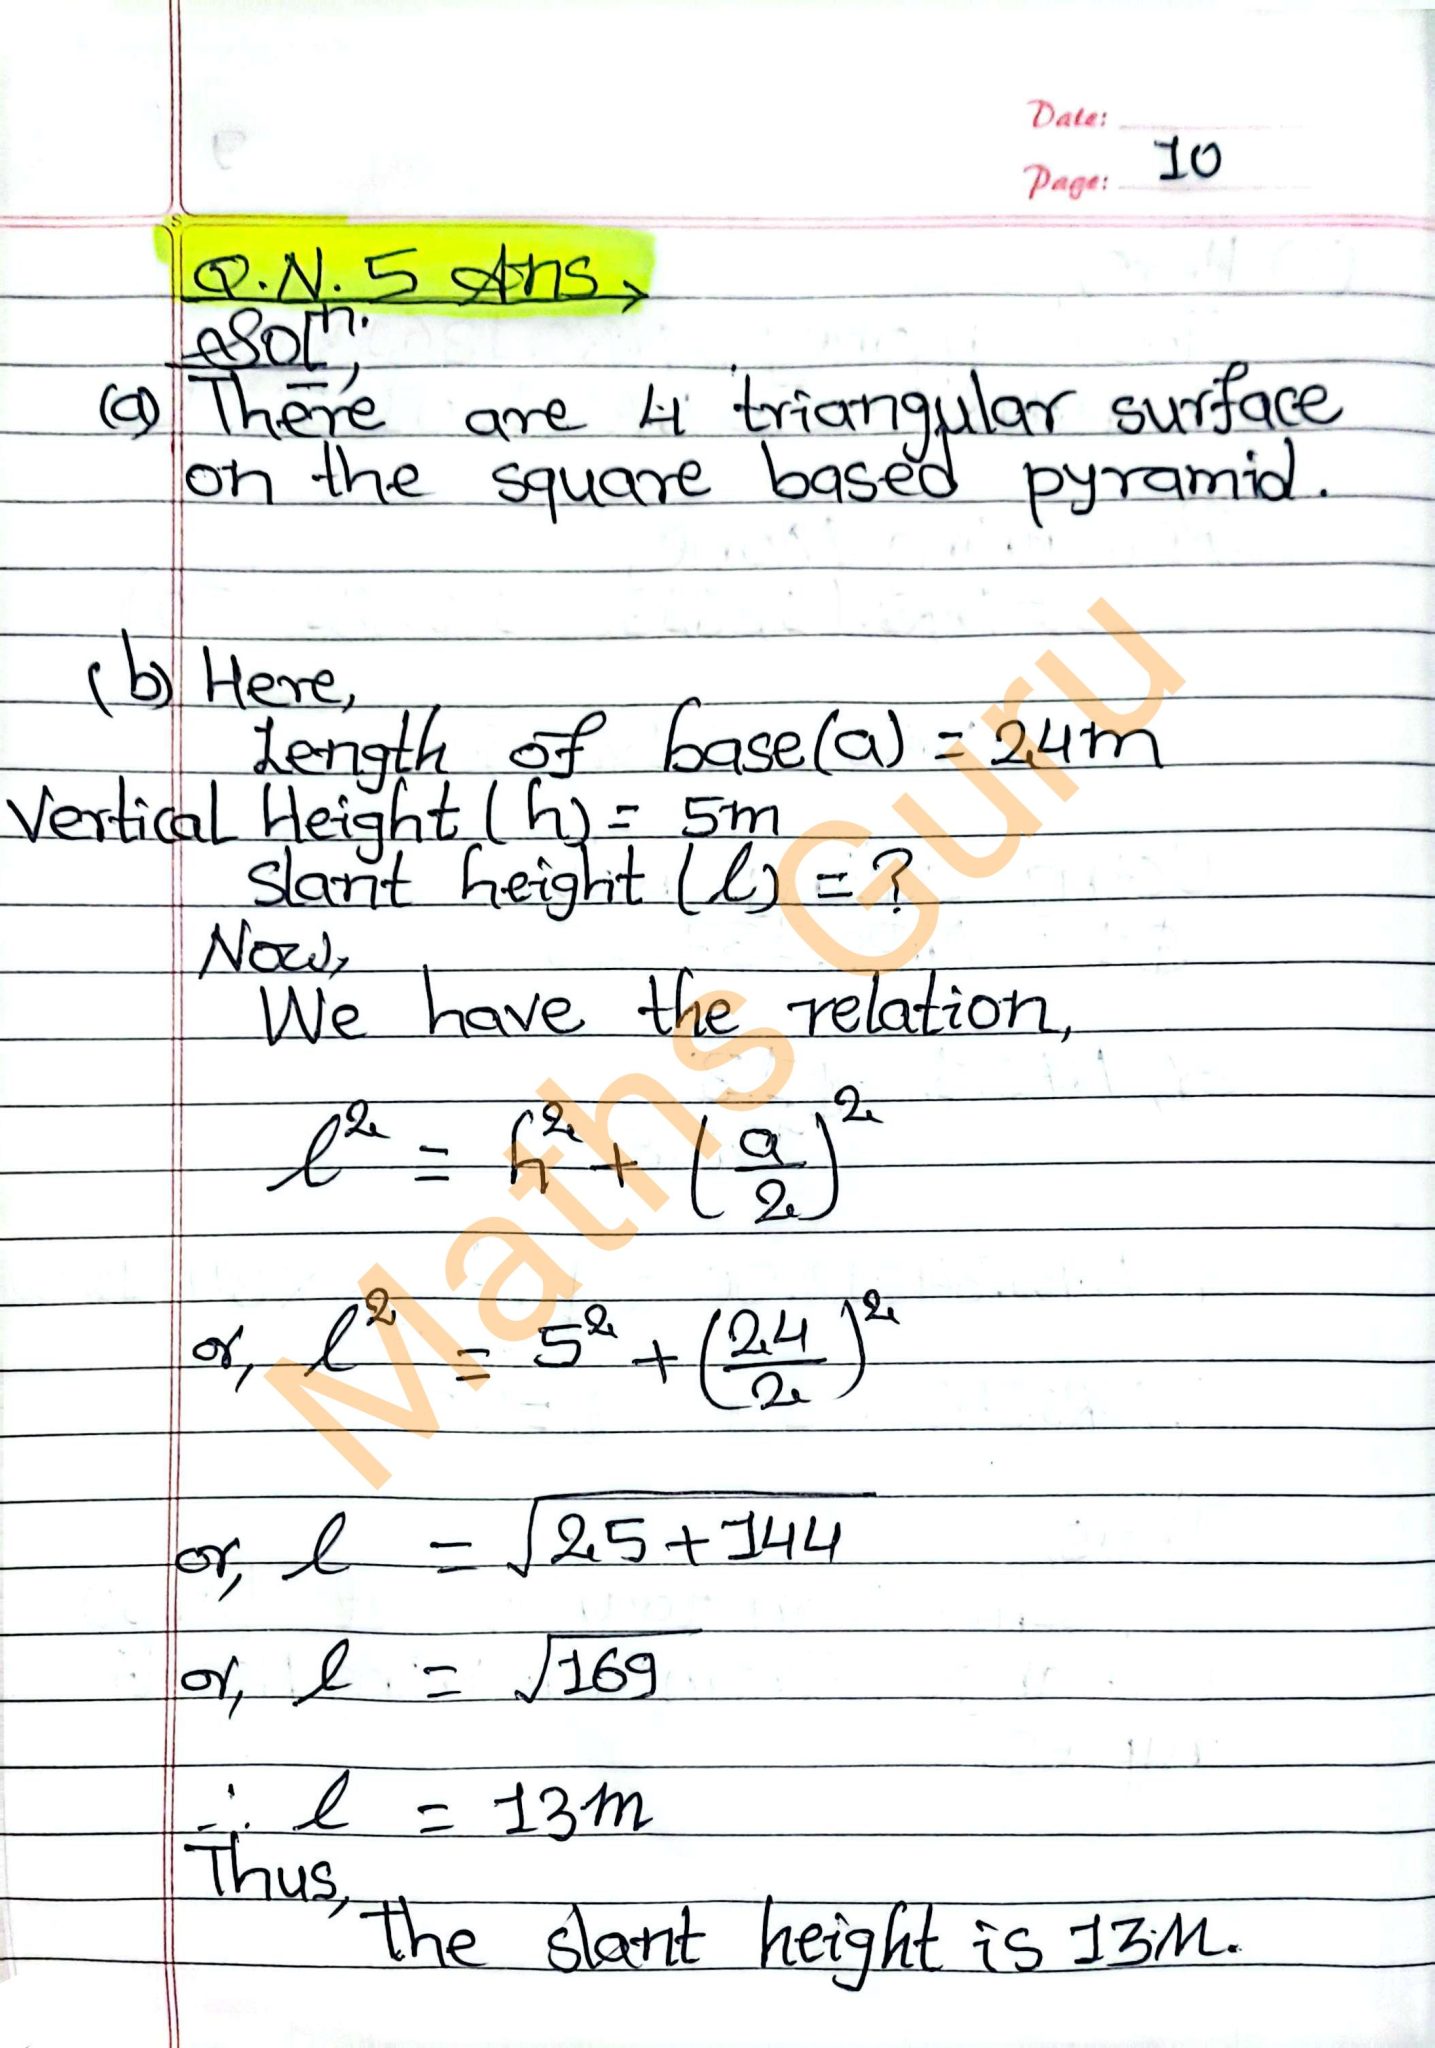 Date:
Page: 10
Q.N. 5 Ans,
Solⁿ.,
(a) There are 4 triangular surface
on the square based pyramid.
(b) Here,
Length of base(a) = 24m
Vertical Height (h) = 5m
Slant height (l) = ?
Now,
We have the relation,
l² = h² + (a/2)²
or, l² = 5² + (24/2)²
or, l = √25+144
or, l = √169
∴ l = 13m
Thus,
The slant height is 13m.
Maths Guru